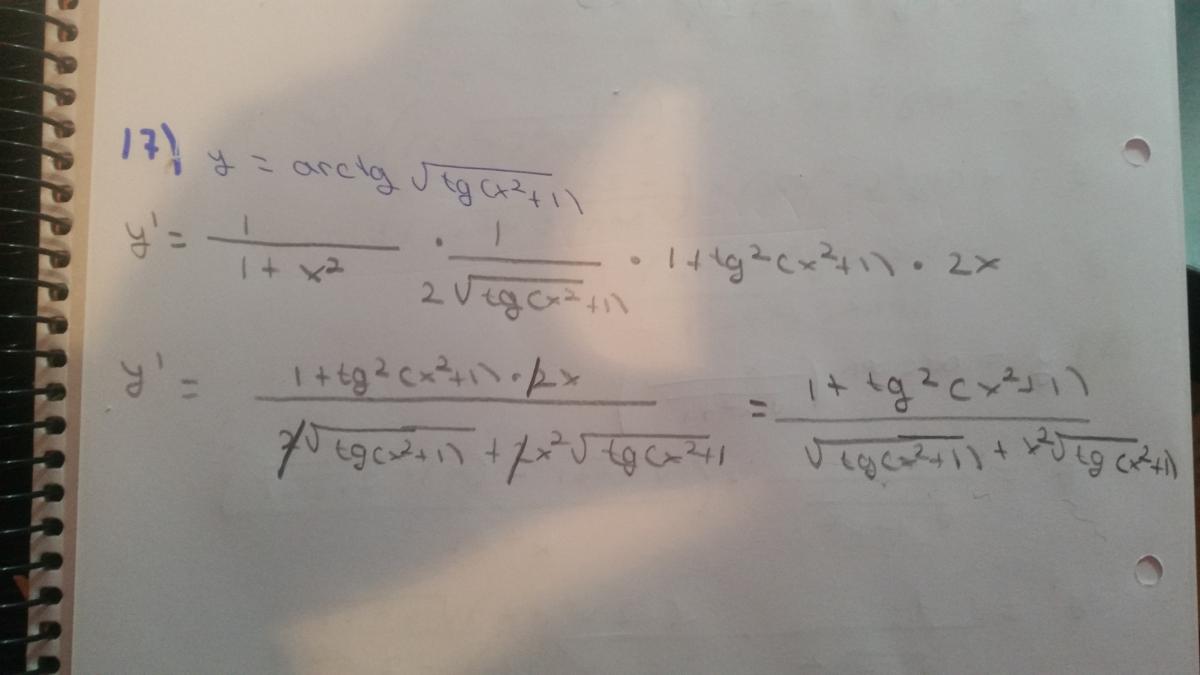 17) y = arctg √tg(x²+1)
y' = 1/(1+x²) · 1/(2√tg(x²+1)) · 1+tg²(x²+1) · 2x
y' = (1+tg²(x²+1)·2x)/(2√tg(x²+1) + 2x²√tg(x²+1) = (1+tg²(x²+1))/(√tg(x²+1) + x²√tg(x²+1))